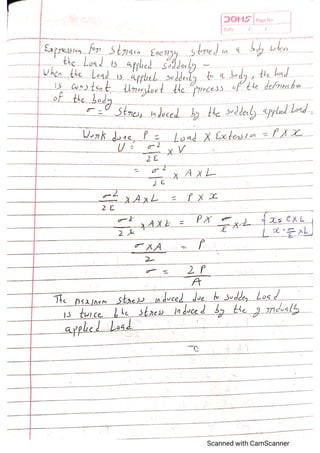 DOMS Page No.
Date / /
Expression for Strain Energy stored in a body when
the Load is applied Suddenly –
When the Load is applied suddenly to a body, the load
is constant throughout the process of the deformation
of the body
σ = Stress induced by the suddenly applied Load.
Work done, P = Load X Extension = P X x
U = σ² / 2E X V
= σ² / 2E X A X L
σ² / 2E X A X L = P X x
σ² / 2E X A X L = P X σ / E X L [x = e X L
x = σ / E X L]
σ X A / 2 = P
σ = 2P / A
The maximum stress induced due to sudden Load
is twice the stress induced by the gradually
applied Load.
Scanned with CamScanner